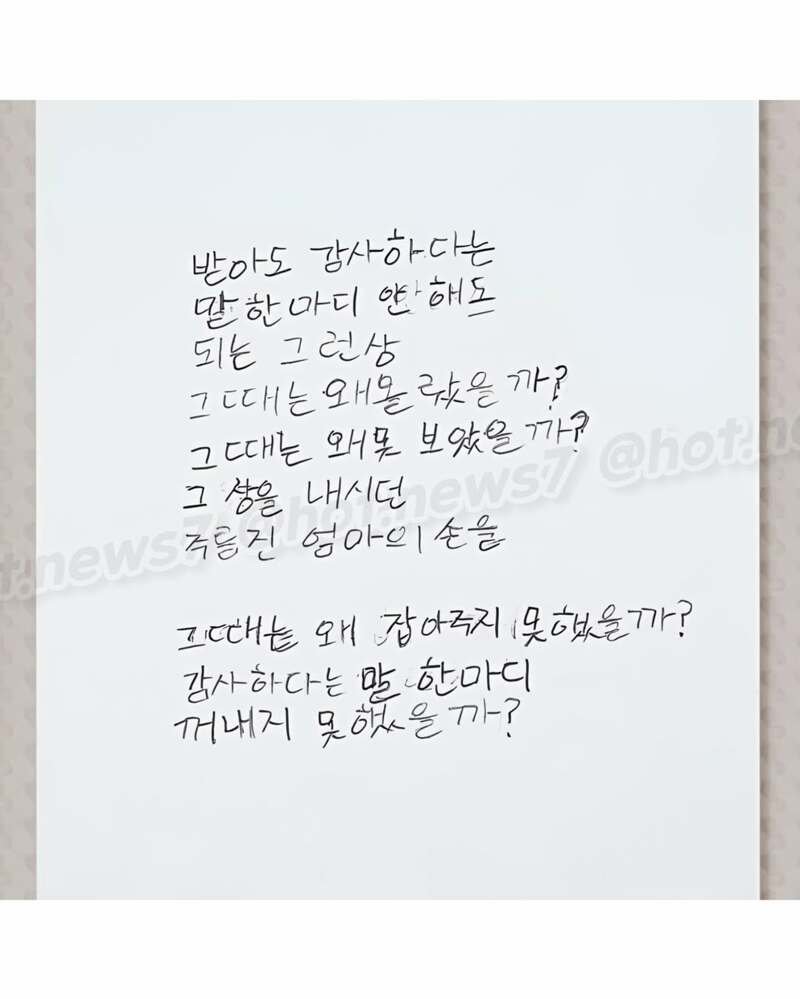 받아도 감사하다는
말 한마디 안 해도
되는 그런상
그때는 왜몰랐을까?
그때는 왜못 보았을까?
그 상을 내시던
주름진 엄마의 손을
그때는 왜 잡아주지 못했을까?
감사하다는 말 한마디
꺼내지 못했을까?
t.news7 @hot.news7 @hot.ne